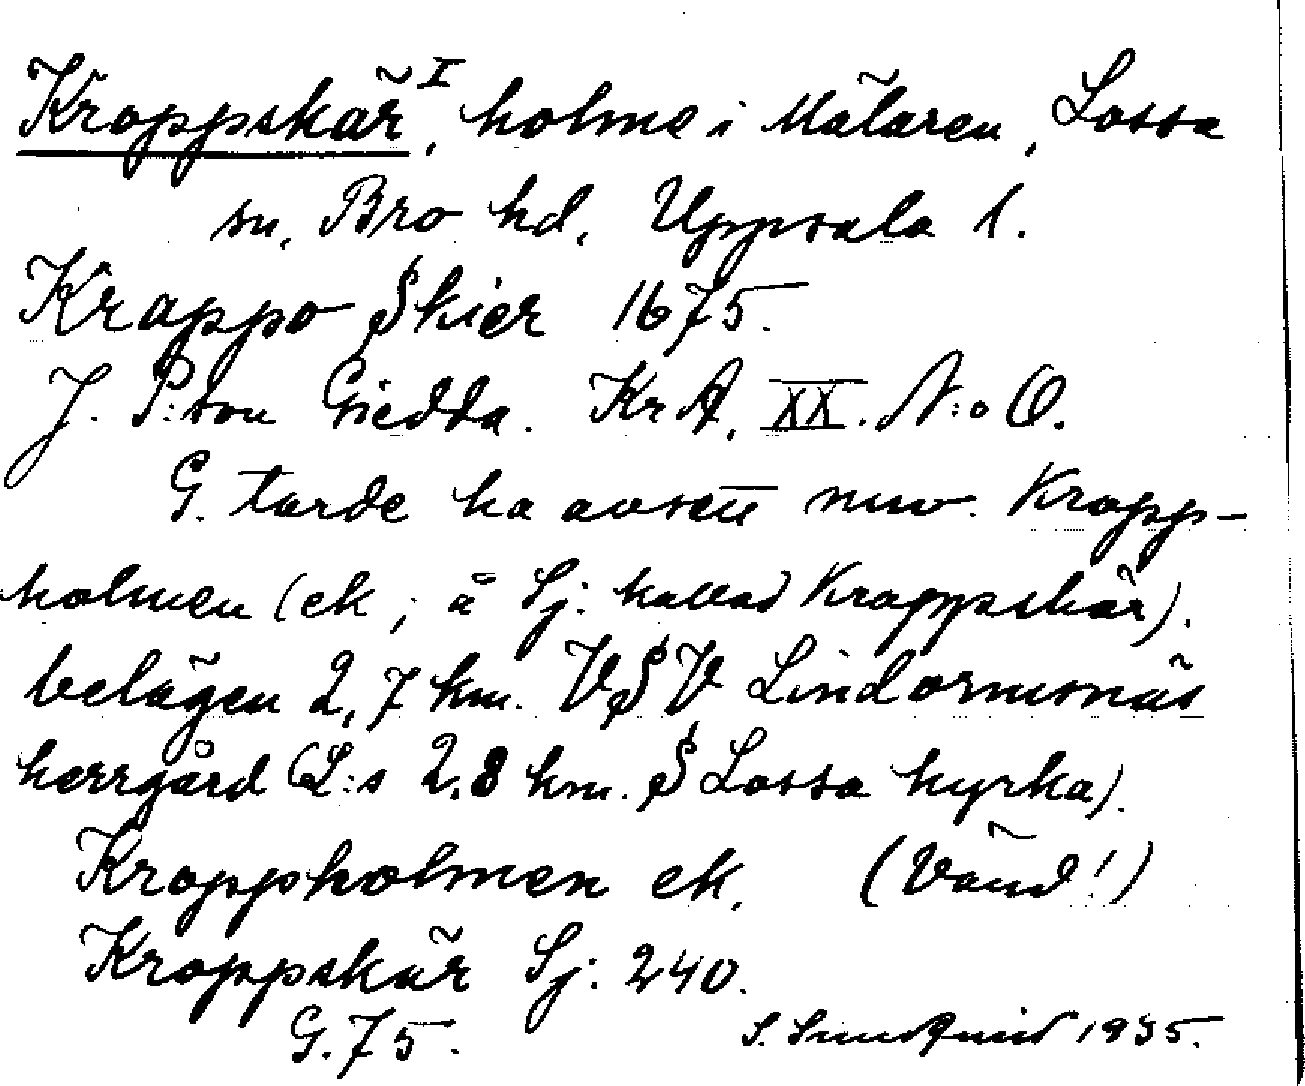 Kroppskär I, holme i Mälaren, Lossa
sn, Bro hd, Uppsala l.
Krappo Skier 1675.
J. P:son Giedda. KrA, XX. N:o O.
G. torde ha avsett nuv. Kropp-
holmen (ek; å Sj. kallad Kroppskär).
belägen 2,7 km. VSV Lindormsnäs
herrgård (L:s 2,8 km. S Lossa kyrka).
Kroppholmen ek. (Vänd!)
Kroppskär Sj. 240.
G. 75. S. Sundqvist 1935.